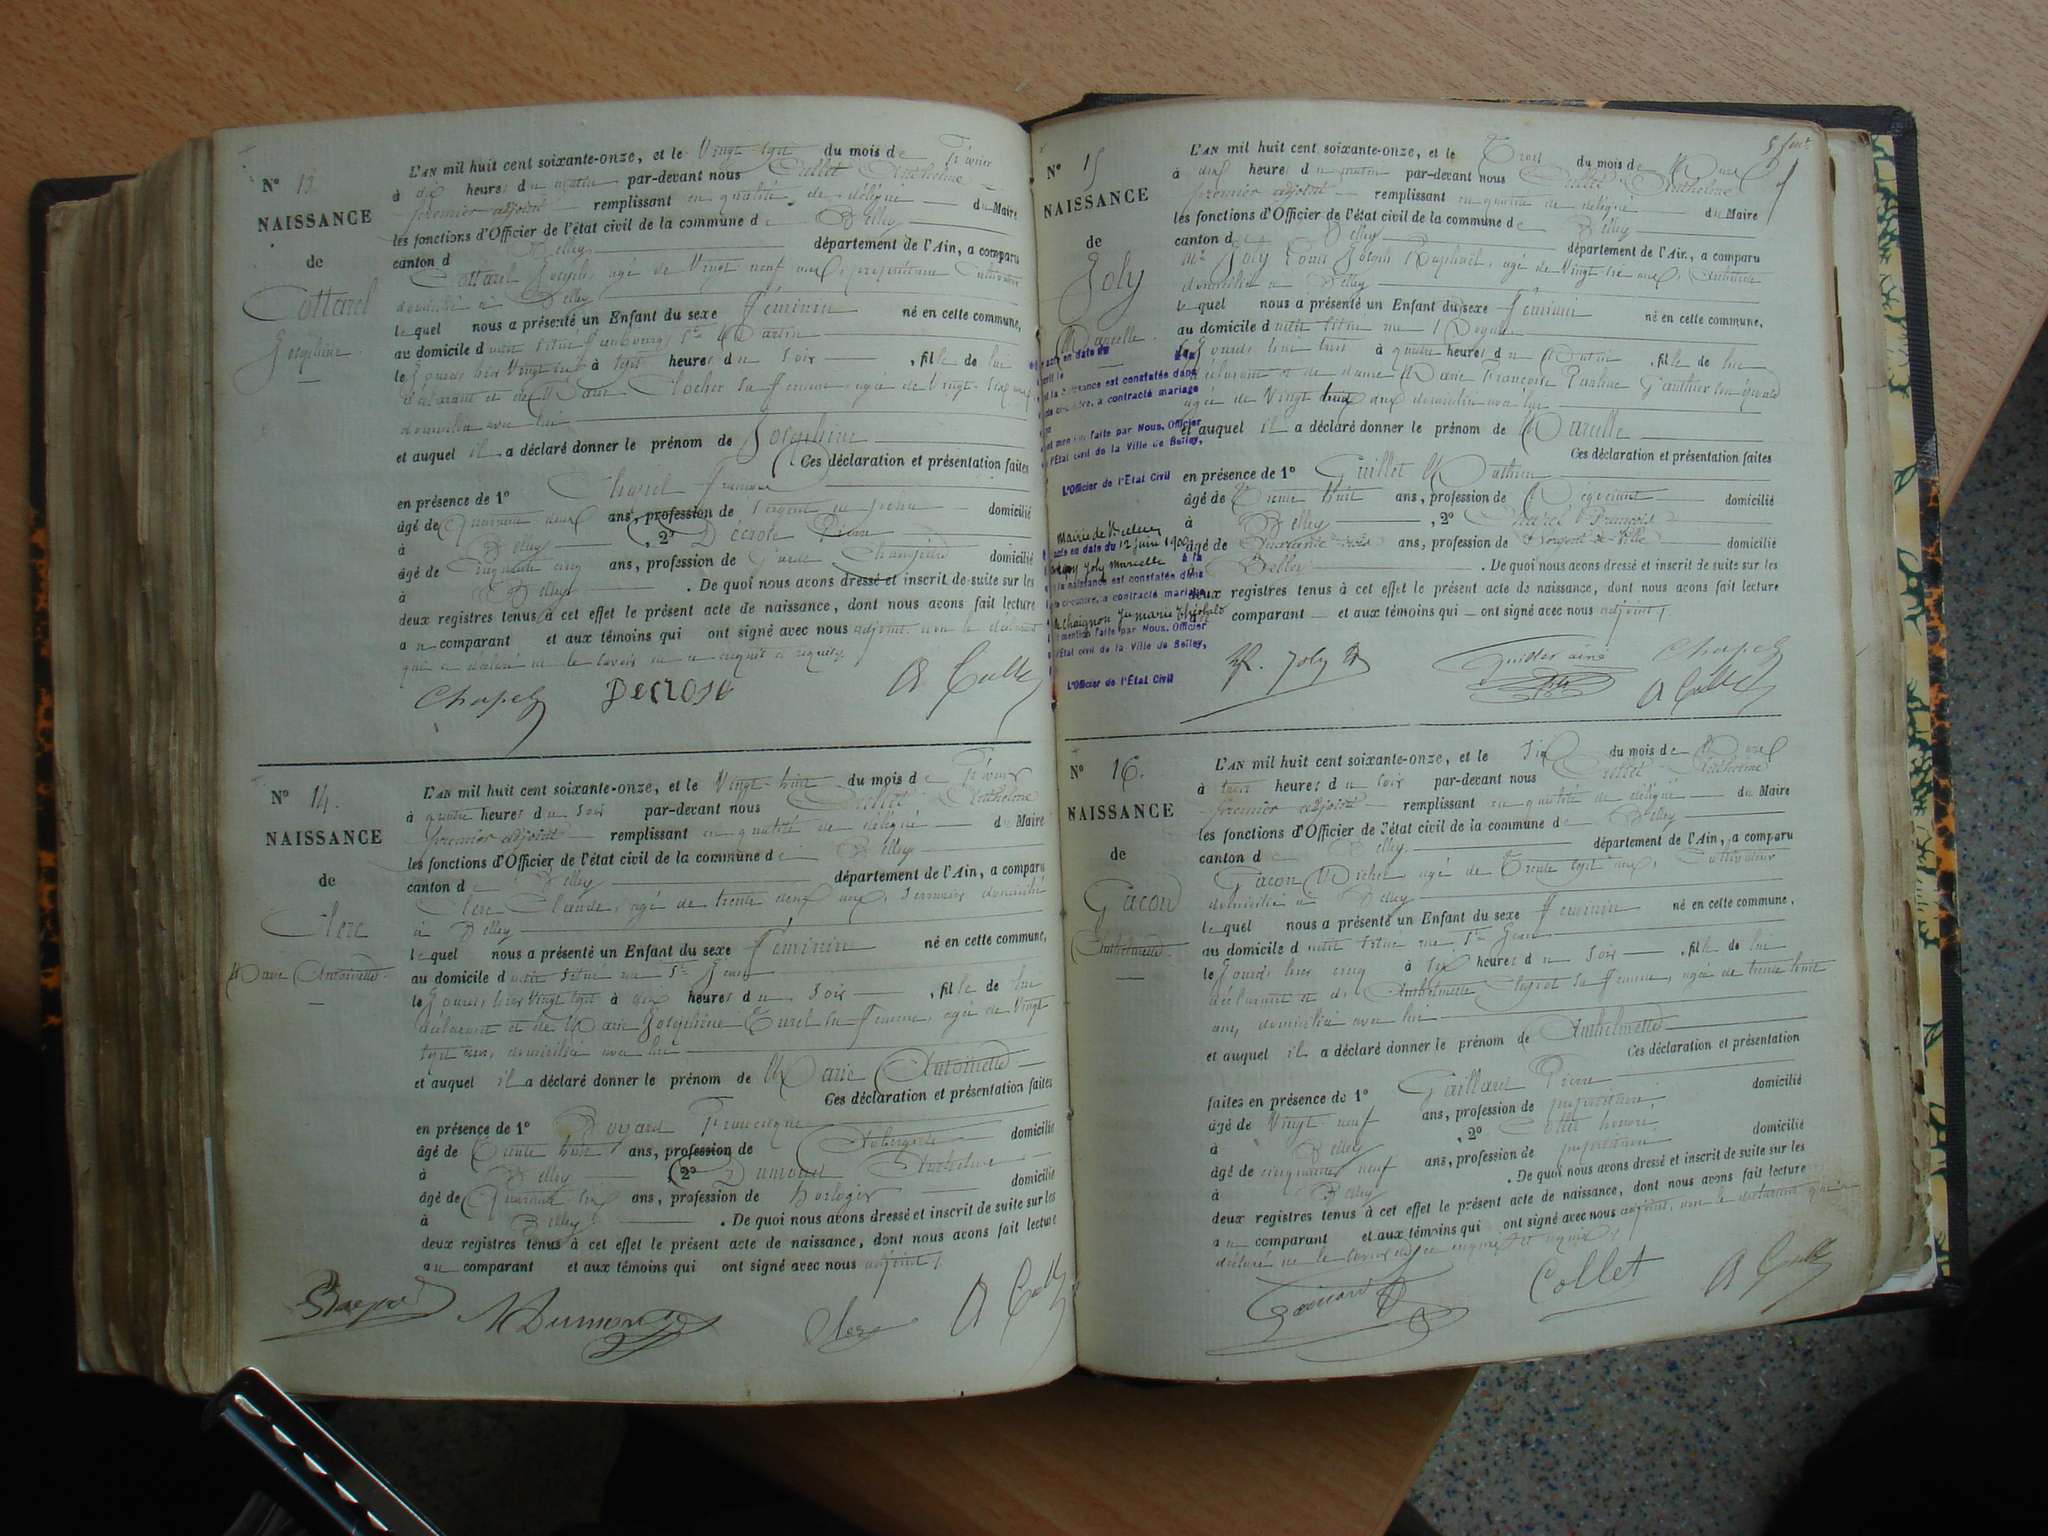 N° 13.
NAISSANCE
de
Cottarel
Joséphine.
L'AN mil huit cent soixante-onze, et le Vingt sept du mois de Février
à dix heures du matin par-devant nous Cullet Anthelme
premier adjoint remplissant en qualité de délégué du Maire
les fonctions d'Officier de l'état civil de la commune de Belley
canton de Belley département de l'Ain, a comparu
Cottarel Joseph, agé de Vingt neuf ans, propriétaire Cultivateur
domicilié à Belley
lequel nous a présenté un Enfant du sexe féminin né en cette commune,
au domicile du dit situé faubourg St Martin
le Jour hier Vingt six à sept heures du soir, fille de lui
déclarant et de Marie Clocher sa femme, agée de Vingt-six ans,
domiciliée avec lui
et auquel il a déclaré donner le prénom de Joséphine
Ces déclaration et présentation faites
en présence de 1° Chapel François
âgé de Quarante deux ans, profession de sergent de ville domicilié
à Belley, 2° Décrose Pierre
âgé de Cinquante cinq ans, profession de Garde Champêtre domicilié
à Belley. De quoi nous avons dressé et inscrit de suite sur les
deux registres tenus à cet effet le présent acte de naissance, dont nous avons fait lecture
au comparant et aux témoins qui ont signé avec nous adjoint non le déclarant
qui a déclaré ne le savoir de ce enquis et requis,
Chapel Decrose A Cullet
N° 14.
NAISSANCE
de
Clerc
Marie Antoinette.
L'AN mil huit cent soixante-onze, et le Vingt-huit du mois de Février
à quatre heures du soir par-devant nous Cullet Anthelme
premier adjoint remplissant en qualité de délégué du Maire
les fonctions d'Officier de l'état civil de la commune de Belley
canton de Belley département de l'Ain, a comparu
Clerc Claude, agé de trente deux ans, serrurier domicilié
à Belley
lequel nous a présenté un Enfant du sexe féminin né en cette commune,
au domicile du dit situé rue St Jean
le Jour hier Vingt sept à dix heures du soir, fille de lui
déclarant et de Marie Joséphine Turel sa femme, agée de Vingt
sept ans, domiciliée avec lui
et auquel il a déclaré donner le prénom de Marie Antoinette
Ces déclaration et présentation faites
en présence de 1° François
âgé de Trente huit ans, profession de Aubergiste domicilié
à Belley, 2° Dumont Anthelme
âgé de Quarante six ans, profession de horloger domicilié
à Belley. De quoi nous avons dressé et inscrit de suite sur les
deux registres tenus à cet effet le présent acte de naissance, dont nous avons fait lecture
au comparant et aux témoins qui ont signé avec nous adjoint,
Dumont Clerc A Cullet
5 feu
N° 15
NAISSANCE
de
Joly
Marcelle.
L'AN mil huit cent soixante-onze, et le Trois du mois de Mars
à dix heures du matin par-devant nous Cullet Anthelme
premier adjoint remplissant en qualité de délégué du Maire
les fonctions d'Officier de l'état civil de la commune de Belley
canton de Belley département de l'Ain, a comparu
Mr Joly Louis Joseph Raphaël, agé de Vingt six ans,
domicilié à Belley
lequel nous a présenté un Enfant du sexe féminin né en cette commune,
au domicile du dit situé rue
le Jour à quatre heures du Matin, fille de lui
déclarant et de dame Marie Françoise Pauline Gauthier son épouse
agée de Vingt ans domiciliée avec lui
et auquel il a déclaré donner le prénom de Marcelle
Ces déclaration et présentation faites
en présence de 1° Guillet Mathieu
âgé de Trente huit ans, profession de Négociant domicilié
à Belley, 2° Chapel François
âgé de Quarante ans, profession de Sergent de Ville domicilié
à Belley. De quoi nous avons dressé et inscrit de suite sur les
deux registres tenus à cet effet le présent acte de naissance, dont nous avons fait lecture
comparant et aux témoins qui ont signé avec nous adjoint,
acte en date du
la naissance est constatée dans
contre, a contracté mariage
mention faite par Nous, Officier
l'État civil de la Ville de Belley,
L'Officier de l'État Civil
Mairie de
acte en date du 12 juin 1900
Joly Marcelle à la
la naissance est constatée dans
ci-contre, a contracté mariage
Chaignon
mention faite par Nous, Officier
l'État civil de la Ville de Belley,
L'Officier de l'État Civil
Joly Guillet ainé Chapel
A Cullet
N° 16.
NAISSANCE
de
Gacon
Anthelmette.
L'AN mil huit cent soixante-onze, et le Six du mois de Mars
à trois heures du soir par-devant nous Cullet Anthelme
premier adjoint remplissant en qualité de délégué du Maire
les fonctions d'Officier de l'état civil de la commune de Belley
canton de Belley département de l'Ain, a comparu
Gacon Michel agé de Trente sept ans, Cultivateur
domicilié à Belley
lequel nous a présenté un Enfant du sexe féminin né en cette commune,
au domicile du dit situé rue St Jean
le Jour hier cinq à six heures du soir, fille de lui
déclarant et de Anthelmette sa femme, agée de trente huit
ans, domiciliée avec lui
et auquel il a déclaré donner le prénom de Anthelmette
Ces déclaration et présentation
faites en présence de 1° Gaillard Pierre
âgé de Vingt-neuf ans, profession de propriétaire, domicilié
à Belley, 2° Collet honoré,
âgé de cinquante neuf ans, profession de propriétaire domicilié
à Belley. De quoi nous avons dressé et inscrit de suite sur les
deux registres tenus à cet effet le présent acte de naissance, dont nous avons fait lecture
au comparant et aux témoins qui ont signé avec nous adjoint, non le déclarant qui a
déclaré ne le savoir de ce enquis et requis,
Gaillard Collet A Cullet